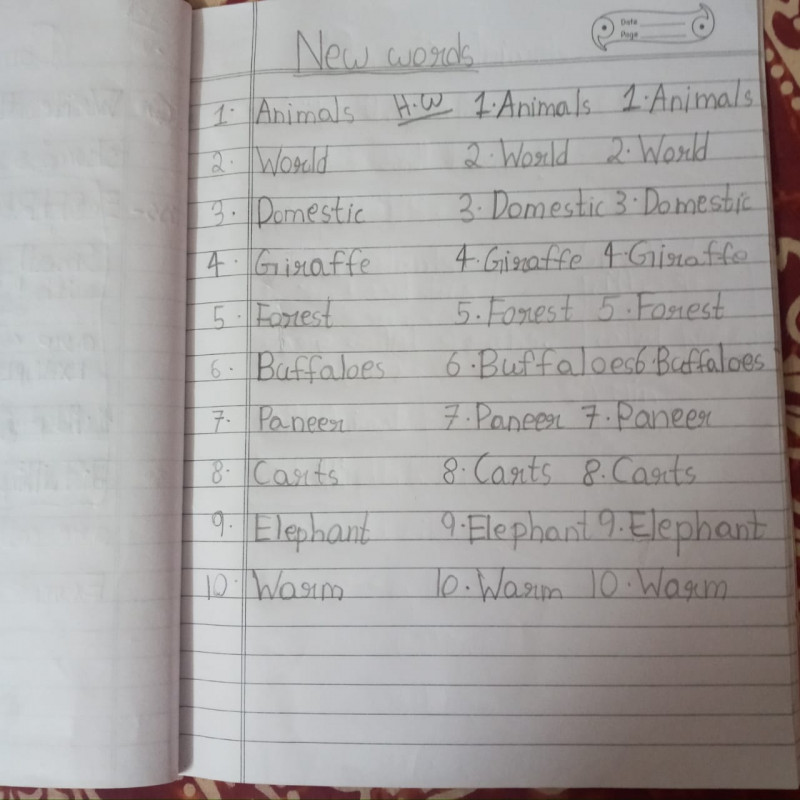 Date
Page
New words
1. Animals H.W 1. Animals 1. Animals
2. World 2. World 2. World
3. Domestic 3. Domestic 3. Domestic
4. Giraffe 4. Giraffe 4. Giraffe
5. Forest 5. Forest 5. Forest
6. Buffaloes 6. Buffaloes 6. Buffaloes
7. Paneer 7. Paneer 7. Paneer
8. Carts 8. Carts 8. Carts
9. Elephant 9. Elephant 9. Elephant
10. Warm 10. Warm 10. Warm